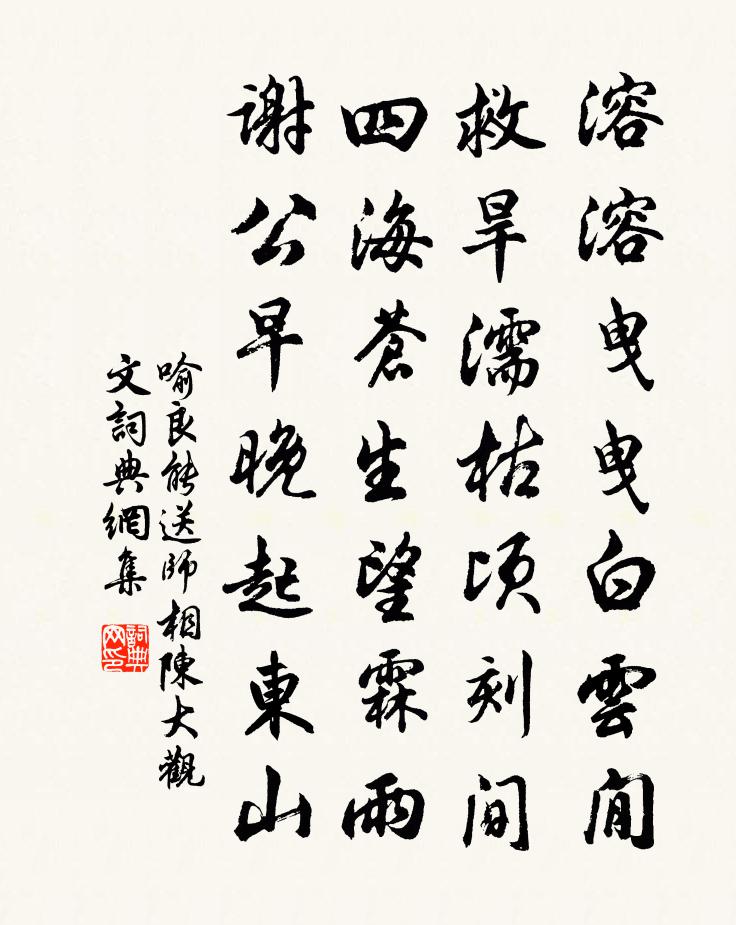 溶溶曳曳白雲閒
救旱濡枯頃刻間
四海蒼生望霖雨
謝公早晚起東山
喻良能送師相陳大觀
文詞典網集
詞典網印